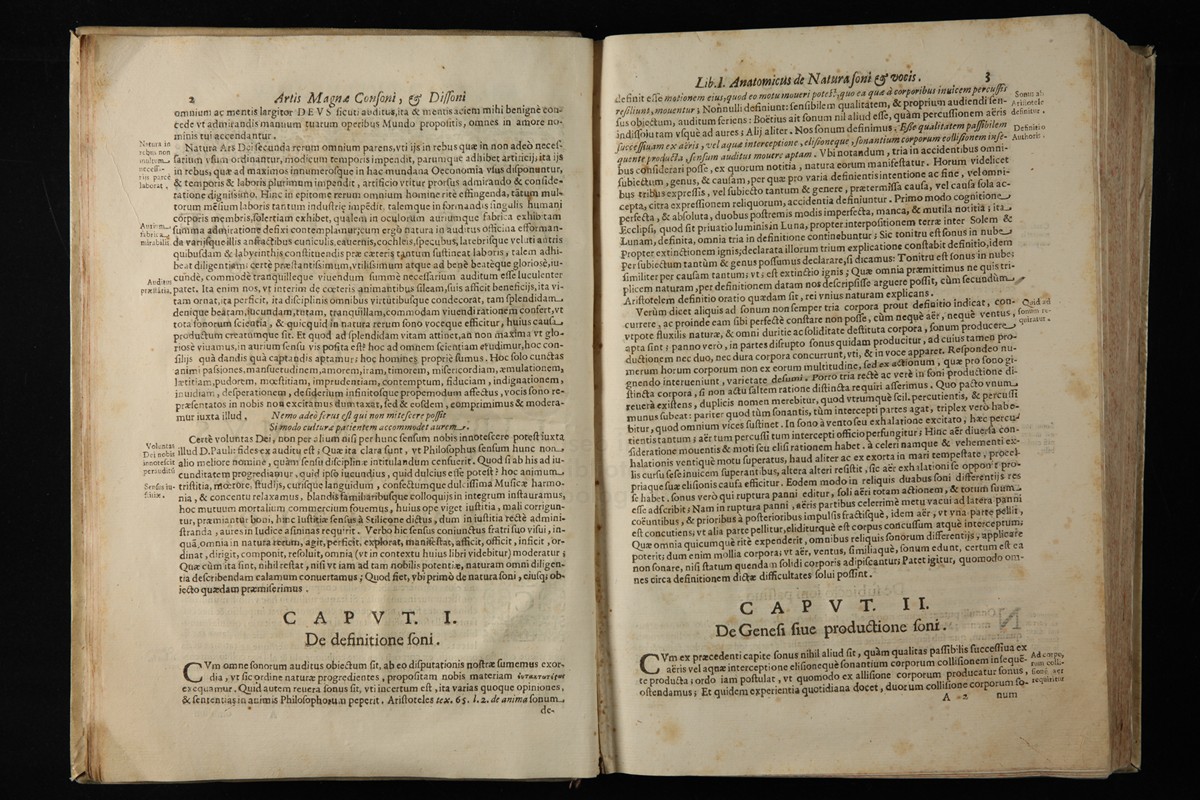 2 Artis Magnæ Consoni, & Dissoni
omnium ac mentis largitor DEVS sicuti auditus, ita & mentis aciem mihi benignè con-
cede vt admirandis manuum tuarum operibus Mundo propositis, omnes in amore no-
minis tui accendantur.
Natura in
rebus non
multum
necessa-
rijs parce
laborat.
Natura Ars Dei secunda rerum omnium parens, vti ijs in rebus quæ in non adeò neces-
sarium vsum ordinantur, modicum temporis impendit, parumque adhibet artificij, ita ijs
in rebus, quæ ad maximos innumerosque in hac mundana Oeconomia vsus disponuntur,
& temporis & laboris plurimum impendit, artificio vtitur prorsus admirando & conside-
ratione dignissimo. Hinc in epitome rerum omnium homine ritè effingenda, tātum mul-
torum mēsium laboris tantum industriæ impēdit, talemque in formandis singulis humani
corporis membris, solertiam exhibet, qualem in oculorum auriumque fabrica exhibitam
Aurium
fabrica
mirabilis
summa admiratione defixi contemplamur; cum ergò natura in auditus officina efforman-
da varijsque illis anfractibus cuniculis, cauernis, cochleis, specubus, latebrisque veluti antris
quibusdam & labyrinthis constituendis præ cæteris tantum sustineat laboris, talem adhi-
beat diligentiam: certè præstantissimum, vtilissimum atque ad benè beatèque gloriosè, iu-
cundè, commodè tranquilleque viuendum summè necessarium auditum esse luculenter
Auditus
præstātia.
patet. Ita enim nos, vt interim de cœteris animantibus sileam, suis afficit beneficijs, ita vi-
tam ornat, ita perficit, ita disciplinis omnibus virtutibusque condecorat, tam splendidam
denique beatam, iucundam, tutam, tranquillam, commodam viuendi rationem confert, vt
tota sonorum scientia, & quicquid in natura rerum sono voceque efficitur, huius causa
productum creatúmque sit. Et quod ad splendidam vitam attinet, an non maxima vt glo-
riosè viuamus, in aurium sensu vis posita est? hoc ad omnem scientiam erudimur, hoc con-
silijs quà dandis quà captandis aptamur; hoc homines propriè sumus. Hoc solo cunctas
animi passiones, mansuetudinem, amorem, iram, timorem, misericordiam, æmulationem,
lætitiam, pudorem, mœstitiam, imprudentiam, contemptum, fiduciam, indignationem,
inuidiam, desperationem, desiderium infinitosque propemodum affectus, vocis sono re-
præsentatos in nobis non excitamus dumtaxat, sed & eosdem, comprimimus & modera-
mur iuxta illud, Nemo adeò ferus est qui non mitescere possit
Si modo culturæ patientem accommodet aurem.
Voluntas
Dei nobis
innotescit
per auditū
Certè voluntas Dei, non per alium nisi per hunc sensum nobis innotescere potest iuxta
illud D. Pauli: fides ex auditu est; Quæ ita clara sunt, vt Philosophus sensum hunc non
alio meliore nomine, quàm sensũ disciplinæ intitulandum censuerit. Quod si ab his ad iu-
cunditatem progrediamur, quid ipso iucundius, quid dulcius esse potest? hoc animum
Sensus iu-
stitiæ.
tristitia, mœrore, studijs, curisque languidum, confectumque dulcissima Musicæ harmo-
nia, & concentu relaxamus, blandis familiaribusque colloquijs in integrum instauramus,
hoc mutuum mortalium commercium fouemus, huius ope viget iustitia, mali corrigun-
tur, præmiantur boni, hinc Iustitiæ sensus à Stilicone dictus, dum in iustitia rectè admini-
stranda, aures in Iudice asininas requirit. Verbo hic sensus coniunctus fratri suo visui, in-
quā, omnia in natura rerum, agit, perficit, explorat, manifestat, afficit, officit, inficit, or-
dinat, dirigit, componit, resoluit, omnia (vt in contextu huius libri videbitur) moderatur;
Quæ cùm ita sint, nihil restat, nisi vt iam ad tam nobilis potentiæ, naturam omni diligen-
tia describendam calamum conuertamus; Quod fiet, vbi primò de natura soni, eiusq; ob-
iecto quædam præmiserimus.
CAPVT. I.
De definitione soni.
CVm omne sonorum auditus obiectum sit, ab eo disputationis nostræ sumemus exor-
dia, vt sic ordine naturæ progredientes, propositam nobis materiam
exequamur. Quid autem reuera sonus sit, vti incertum est, ita varias quoque opiniones,
& sententias in animis Philosophorum peperit. Aristoteles tex. 65. l. 2. de anima sonum
de-
Lib. I. Anatomicus de Natura soni & vocis. 3
definit esse motionem eius, quod eo motu moueri potest, quo ea quæ à corporibus inuicem percussis
Sonus ab
Aristotele
definitur.
resiliunt, mouentur; Nonnulli definiunt: sensibilem qualitatem, & proprium audiendi sen-
sus obiectum, auditum feriens: Boëtius ait sonum nil aliud esse, quàm percussionem aëris
indissolutam vsquè ad aures; Alij aliter. Nos sonum definimus. Esse qualitatem passibilem
Definitio
Authoris.
successiuam ex aëris, vel aquæ interceptione, elisioneque, sonantium corporum collisionem inse-
quente producta, sensum auditus mouere aptam. Vbi notandum, tria in accidentibus omni-
bus considerari posse, ex quorum notitia, natura eorum manifestatur. Horum videlicet
subiectum, genus, & causam, per quæ pro varia definientis intentione ac fine, vel omni-
bus tribus expressis, vel subiecto tantum & genere, prætermissa causa, vel causa sola ac-
cepta, citra expressionem reliquorum, accidentia definiuntur. Primo modo cognitione
perfecta, & absoluta, duobus postremis modis imperfecta, manca, & mutila notitia; ita
Ecclipsi, quod sit priuatio luminis in Luna, propter interpositionem terræ inter Solem &
Lunam, definita, omnia tria in definitione continebuntur; Sic tonitru est sonus in nube
Propter extinctionem ignis; declarata illorum trium explicatione constabit definitio, idem
Per subiectum tantùm & genus possumus declarare, si dicamus: Tonitru est sonus in nube;
similiter per causam tantum; vt; est extinctio ignis; Quæ omnia præmittimus ne quis tri-
plicem naturam, per definitionem datam nos descripsisse arguere possit, cùm secundùm
Aristotelem definitio oratio quædam sit, rei vnius naturam explicans.
Verùm dicet aliquis ad sonum non semper tria corpora prout definitio indicat, con-
Quid ad
sonum re-
quiratur.
currere, ac proinde eam sibi perfectè constare non posse, cùm nequè aër, nequè ventus,
vtpote fluxilis naturæ, & omni duritie ac soliditate destituta corpora, sonum producere
apta sint; panno verò, in partes disrupto sonus quidam producitur, ad cuius tamen pro-
ductionem nec duo, nec dura corpora concurrunt, vti, & in voce apparet. Respondeo nu-
merum horum corporum non ex eorum multitudine, sed ex actionum, quæ pro sono gi-
gnendo interueniunt, varietate desumi. Porro tria rectè ac verè in soni productione di-
stincta corpora, si non actu saltem ratione distincta requiri asserimus. Quo pacto vnum
reuerà existens, duplicis nomen merebitur, quod vtrumquè scil. percutientis, & percussi
munus subeat: pariter quod tùm sonantis, tùm intercepti partes agat, triplex verò habe-
bitur, quod omnium vices sustinet. In sono à vento seu exhalatione excitato, hæc percu-
tientis tantum; aër tum percussi tum intercepti officio perfungitur; Hinc aër diuersa con-
sideratione mouentis & moti seu elisi rationem habet. à celeri namque & vehementi ex-
halationis ventique motu superatus, haud aliter ac ex exorta in mari tempestate, procel-
lis cursu sese inuicem superantibus, altera alteri resistit, sic aër exhalationi se opponit pro-
priaque suæ elisionis causa efficitur. Eodem modo in reliquis duabus soni differentijs res
se habet. sonus verò qui ruptura panni editur, soli aëri totam actionem, & totum suum
esse adscribit; Nam in ruptura panni, aëris partibus celerrimè metu vacui ad latera panni
coëuntibus, & prioribus à posterioribus impulsis fractisque, idem aër, vt vna parte pellit,
est concutiens; vt alia parte pellitur, eliditurque est corpus concussum atque interceptum;
Quæ omnia quicumque ritè expenderit, omnibus reliquis sonorum differentijs, applicare
poterit; dum enim mollia corpora; vt aër, ventus, similiaque, sonum edunt, certum est ea
non sonare, nisi statum quendam solidi corporis adipiscantur; Patet igitur, quomodo om-
nes circa definitionem dictæ difficultates solui possint.
CAPVT. II.
De Genesi siue productione soni.
CVm ex præcedenti capite sonus nihil aliud sit, quàm qualitas passibilis successiua ex
Ad corpo-
rum colli-
sionē aer
requiritur
aëris vel aquæ interceptione elisionequè sonantium corporum collisionem insequē-
te producta; ordo iam postulat, vt quomodo ex allisione corporum producatur sonus,
ostendamus; Et quidem experientia quotidiana docet, duorum collisione corporum so-
A 2 num